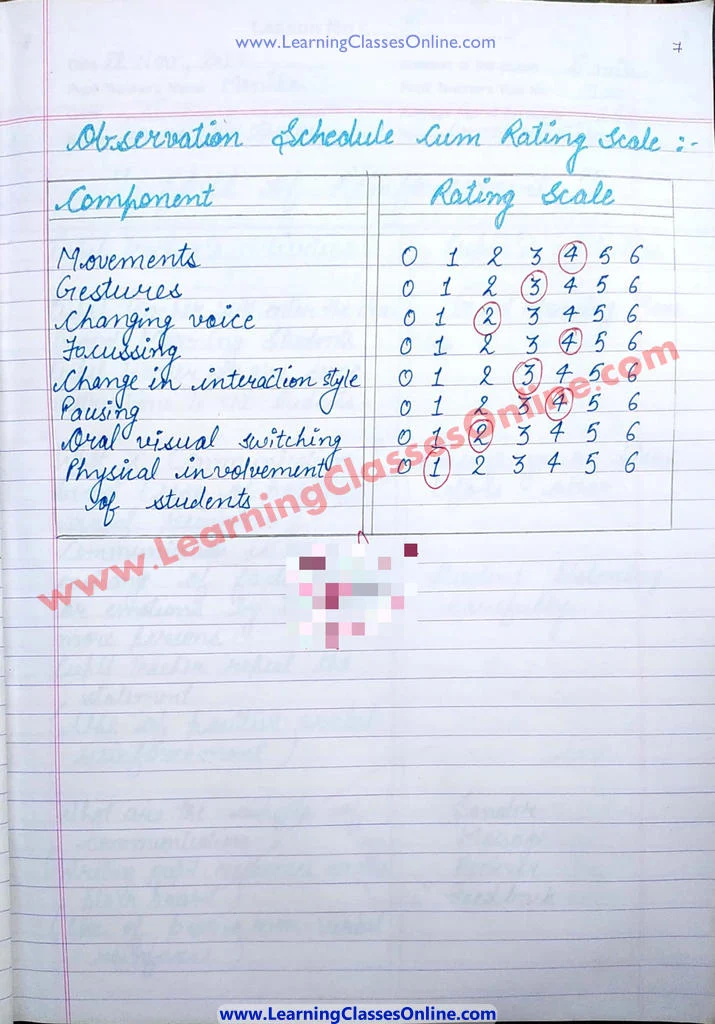 www.LearningClassesOnline.com
7
Observation Schedule Cum Rating Scale :-
Component Rating Scale
Movements 0 1 2 3 4 5 6
Gestures 0 1 2 3 4 5 6
Changing voice 0 1 2 3 4 5 6
Focussing 0 1 2 3 4 5 6
Change in interaction style 0 1 2 3 4 5 6
Pausing 0 1 2 3 4 5 6
Oral visual switching 0 1 2 3 4 5 6
Physical involvement 0 1 2 3 4 5 6
of students
www.LearningClassesOnline.com
www.LearningClassesOnline.com